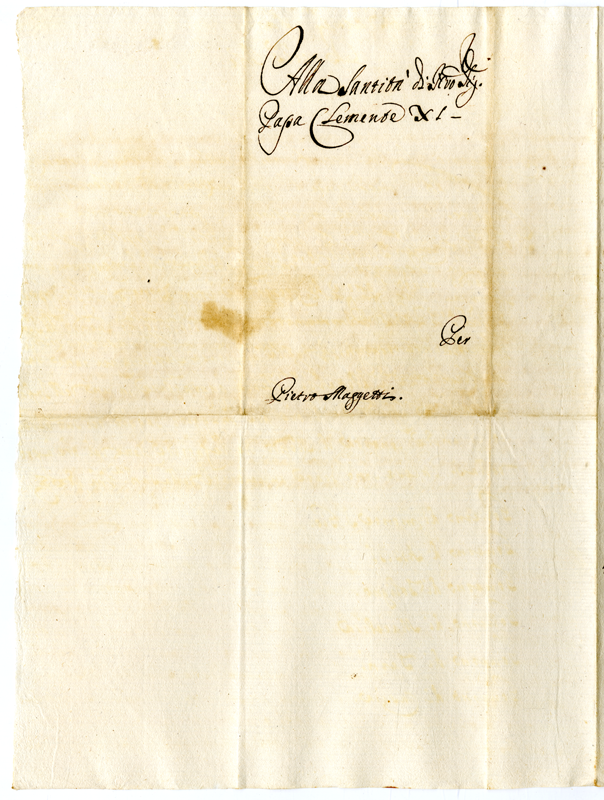 Alla Santità di Nro Sig.re
Papa Clemente XI
Per
Pietro Maggetti.